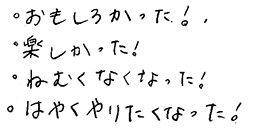 。おもしろかった!,
・楽しかった!
・ねむくなくなった!
。はやくやりたくなった!